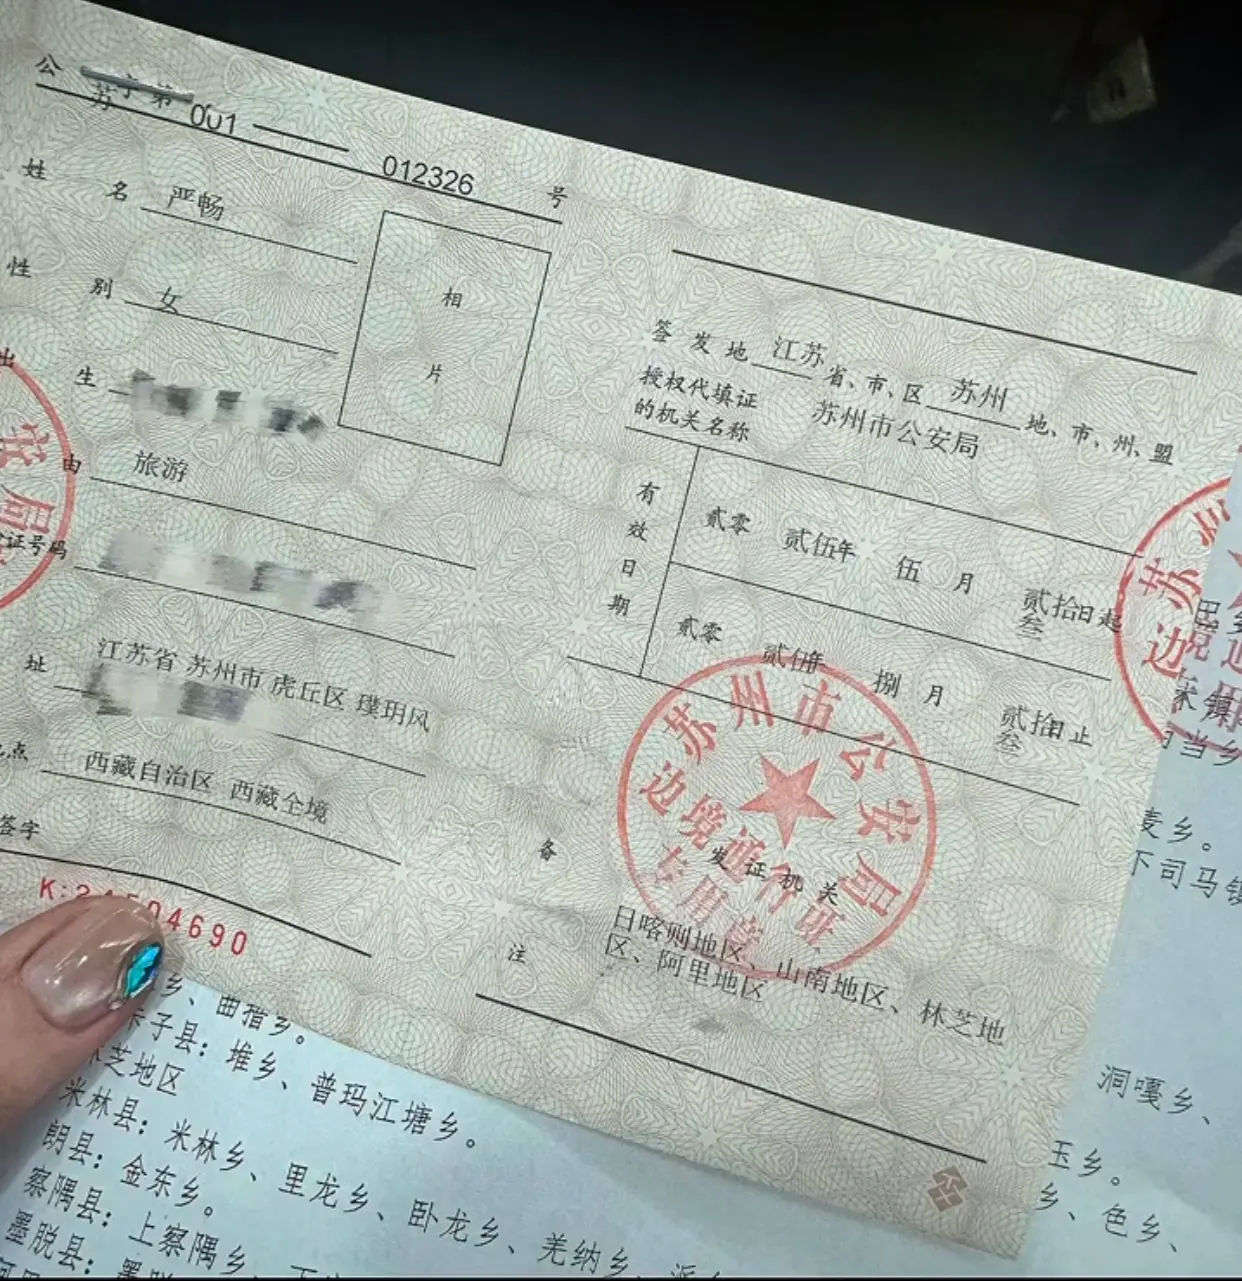 公 苏字第 001 012326 号
姓 名 严畅
性 别 女
出 生
由 旅游
证号码
址 江苏省 苏州市 虎丘区 璞玥风
点 西藏自治区 西藏全境
签字
K: 4690
相
片
签发地 江苏 省、市、区 苏州 地、市、州、盟
授权代填证
的机关名称
苏州市公安局
有效日期
贰零 贰伍年 伍 月 贰拾叁日起
贰零 贰伍年 捌 月 贰拾叁日止
苏州市公安局
边境通行证
专用章
发证机关
备
注
日喀则地区、山南地区、林芝地
区、阿里地区
安
局
苏
边境通
当乡
麦乡。
下司马镇
洞嘎乡、
玉乡。
乡、色乡、
乡、曲措乡。
子县：堆乡、普玛江塘乡。
芝地区
米林县：米林乡、里龙乡、卧龙乡、羌纳乡、派
朗县：金东乡。
察隅县：上察隅乡、下
墨脱县：墨脱